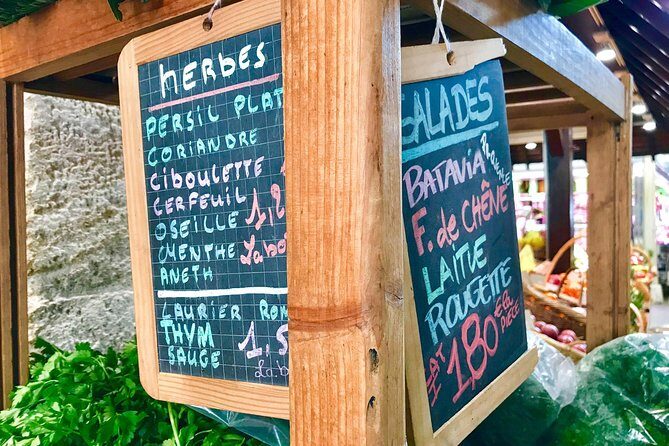 HERBES
PERSIL PLAT
CORIANDRE
CIBOULETTE
CERFEUIL
OSEILLE
MENTHE
ANETH
LAURIER ROM
THYM
SAUGE
SALADES
BATAVIA
F. de CHÊNE
LAITUE
ROUGETTE
1,80 € LA PIÈCE